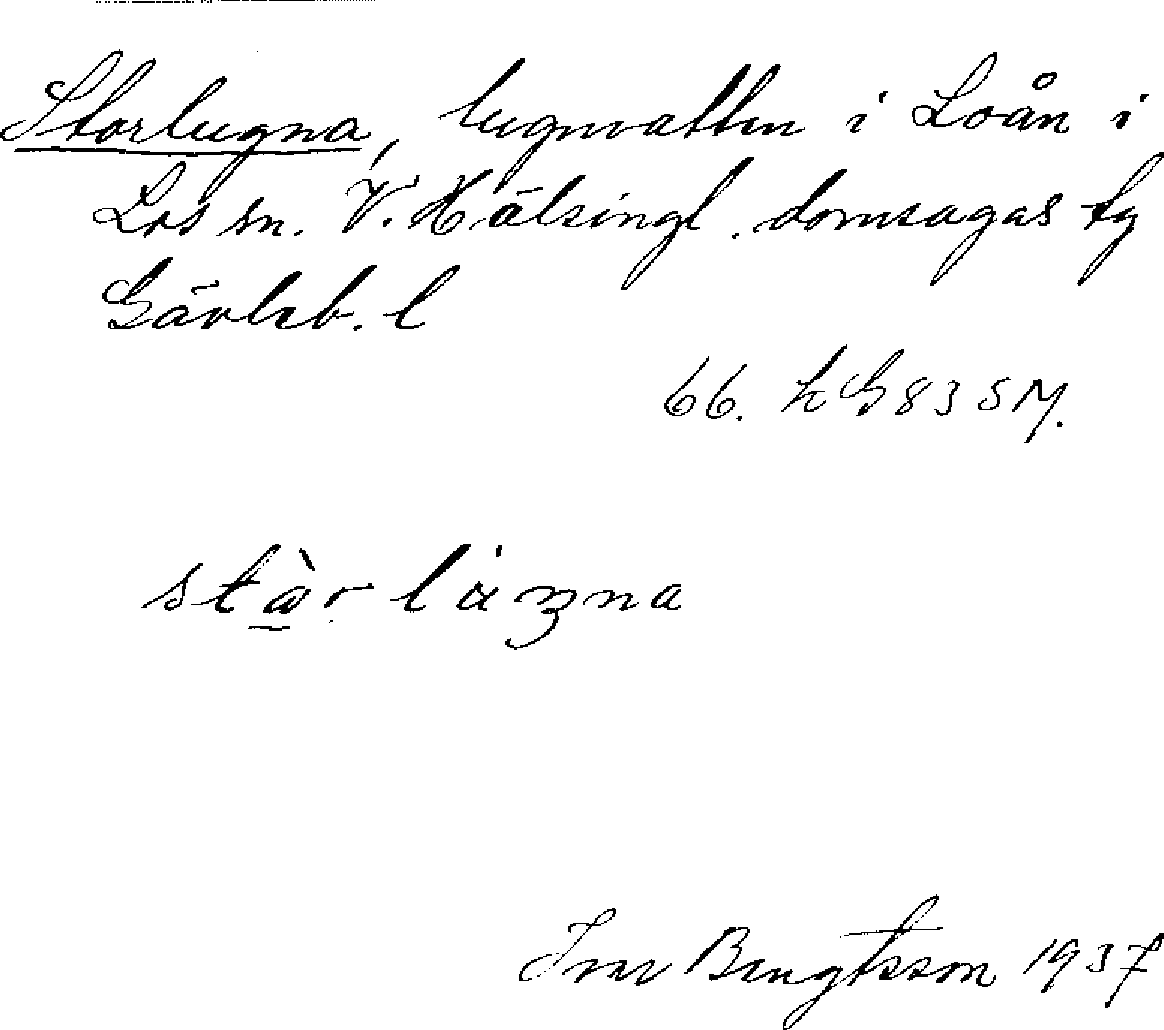 Storlugna, lugnvatten i Loån i
Los sn. V. Hälsingl. domsagas tg
Gävleb. l
66. h G 83 S M.
stàr lugna
Ivar Bengtsson 1937